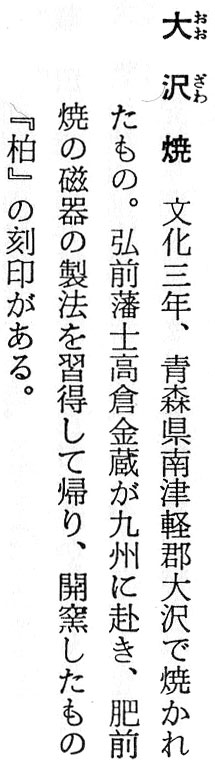 大沢焼　文化三年、青森県南津軽郡大沢で焼かれ
たもの。弘前藩士高倉金蔵が九州に赴き、肥前
焼の磁器の製法を習得して帰り、開窯したもの
『柏』の刻印がある。
おお
ざわ